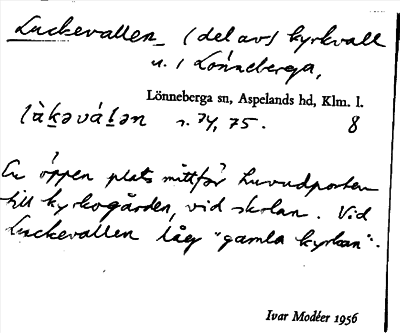 Luckevallen (del av) kyrkvall
n. i Lönneberga,
Lönneberga sn, Aspelands hd, Klm. l.
s. 74, 75. 8
En öppen plats mittför huvudporten
till kyrkogården, vid skolan. Vid
Luckevallen låg "gamla kyrkan".
Ivar Modéer 1956